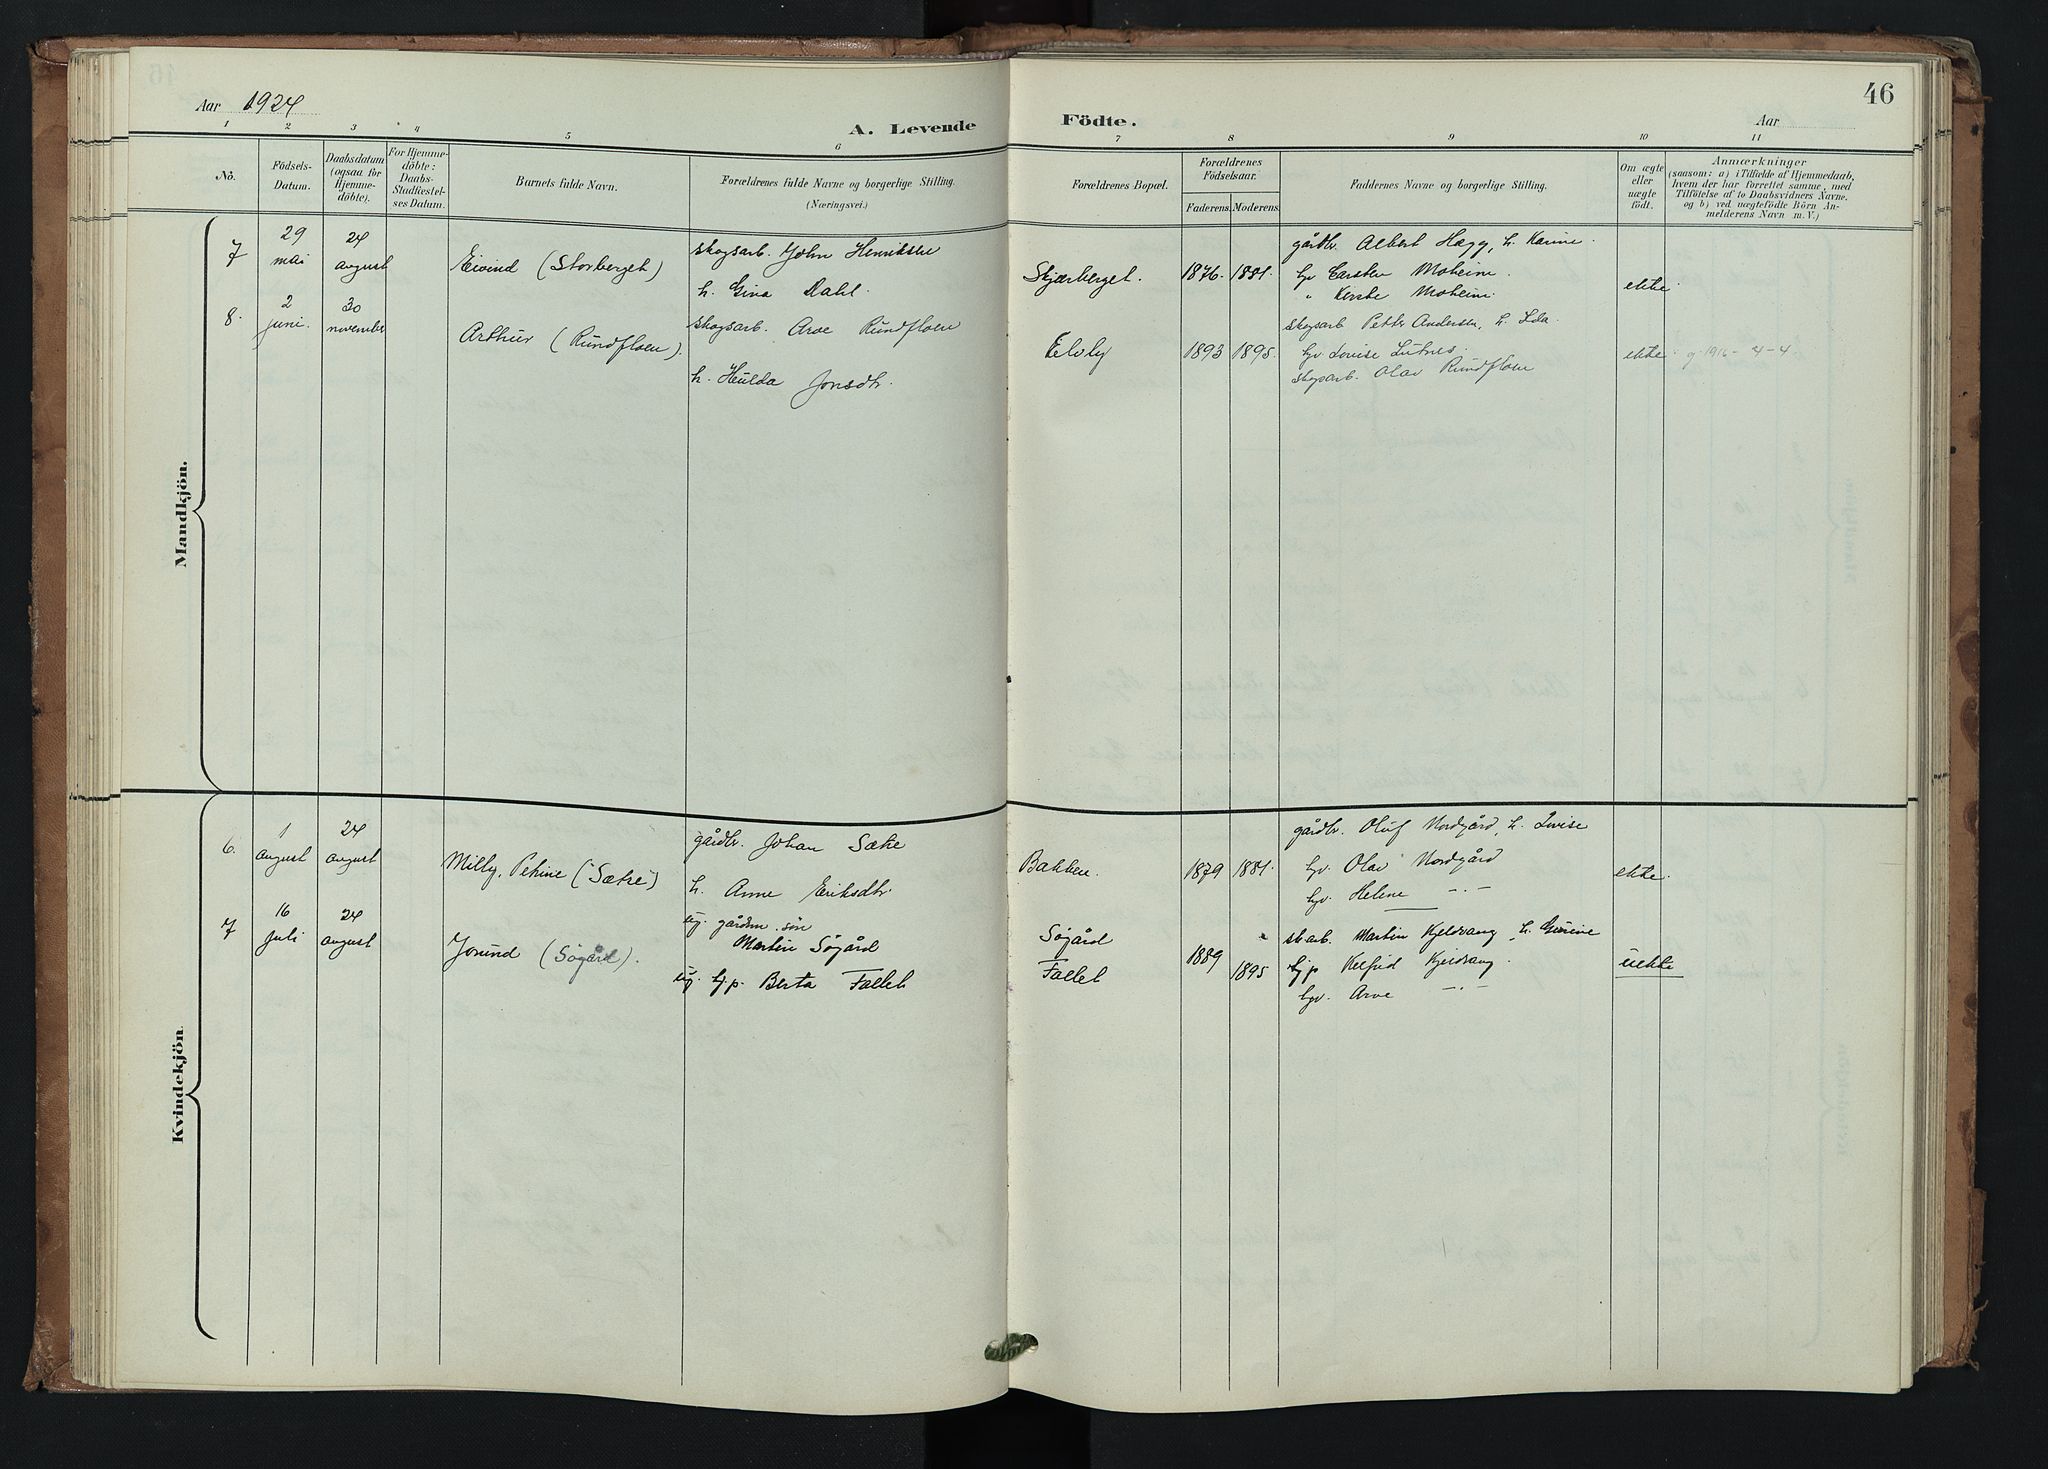 Aar 1924
A. Levende Födte.
Aar
46
1 2 3 4 5 6 7 8 9 10 11
No.
Födsels-
Datum.
Daabsdatum
(ogsaa for
Hjemme-
döbte).
For Hjemme-
döbte:
Daabs-
Stadfæstel-
ses Datum.
Barnets fulde Navn.
Forældrenes fulde Navne og borgerlige Stilling.
(Næringsvei.)
Forældrenes Bopæl.
Forældrenes
Födselsaar.
Faderens. Moderens.
Faddernes Navne og borgerlige Stilling.
Om ægte
eller
uægte
födt.
Anmærkninger
(saasom: a) i Tilfælde af Hjemmedaab,
hvem der har forrettet samme, med
Tilföielse af to Daabsvidners Navne,
og b) ved uægtefödte Börn An-
melderens Navn m. V.)
Mandkjön.
7
29
mai
24
august
Eivind (Storberget)
skogsarb. John Henriksen
h. Gina Dahl.
Skjærberget.
1876. 1881.
gårdbr. Albert Hægg, h. Karine.
gv Carsten Moheim.
" Kerste Moheim.
ekte
8.
2
juni.
30
november
Arthur (Rundfloen).
skogsarb. Arve Rundfloen
h. Hulda Jonsdtr.
Elvly
1893 1895.
skogsarb Petter Andersen, h. Ida.
gv. Lovise Lutnes.
skogsarb. Olav Rundfloen
ekte
g. 1916 - 4 - 4
Kvindekjön.
6.
1
august
24
august
Milly, Petrine (Sætre)
gårdbr. Johan Sætre
h. Anne Eriksdtr.
Bakken.
1879 1881.
gårdbr. Oluf Nordgård, h. Lovise
gv. Olav Nordgård
gv. Helene —"—
ekte.
7
16
juli
24
august
Jorund (Søgård).
ug. gårdm. søn
Martin Søgård
ug. gp. Berta Fallet
Søgård
Fallet
1889
1895
sk arb. Martin Kjeldvang, h. Gurine
gp Kelfrid Kjeldvang.
gv. Arve —"—
uekte